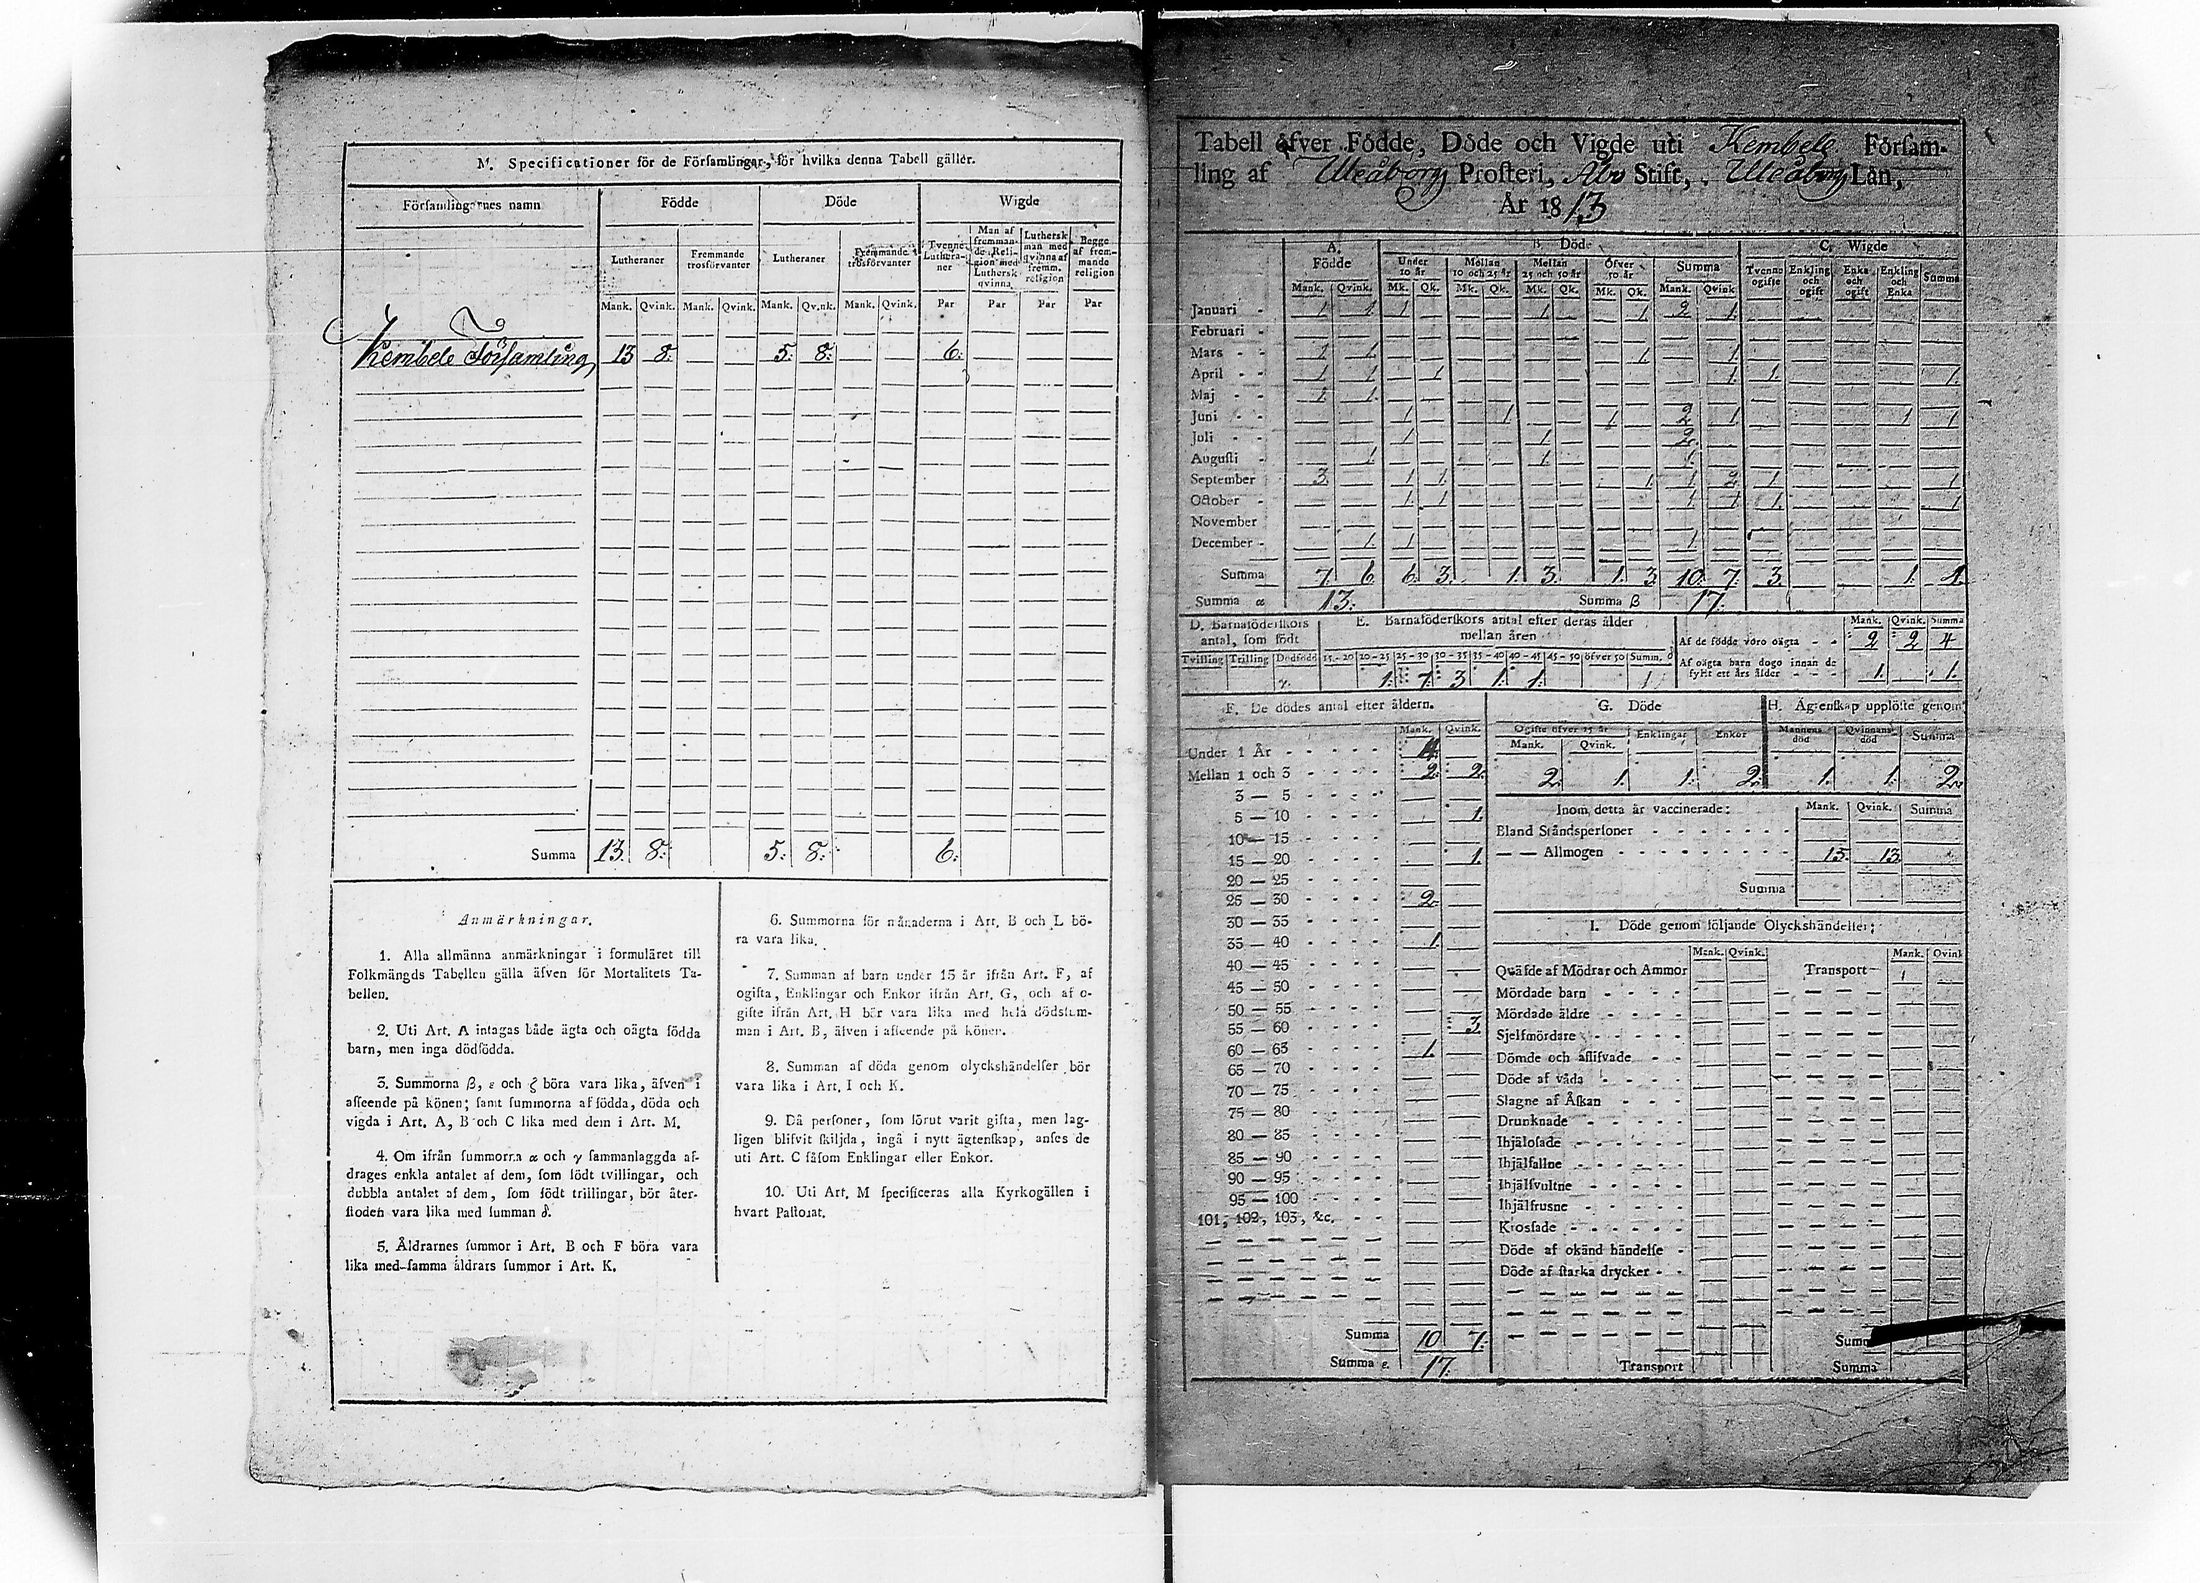 M. Specificationer för de Församlingar, för hvilka denna Tabell gäller.
Församlingarnes namn | Födde | Döde | Wigde
Lutheraner | Fremmande trosförvanter | Lutheraner | Fremmande trosförvanter | Tvenne Luthera-ner | Man af fremman-de Reli-gion med Luthersk qvinna | Luthersk man med qvinna af fremm. religion | Begge af frem-mande religion
Mank. Qvink. Mank. Qvink. Mank. Qvink. Mank. Qvink. Par Par Par Par
Kembele Församling 13 8. 5. 8. 6.
Summa 13. 8. 5. 8. 6.
Anmärkningar.
1. Alla allmänna anmärkningar i formuläret till
Folkmängds Tabellen gälla äfven för Mortalitets Ta-
bellen.
2. Uti Art. A intagas både ägta och oägta födda
barn, men inga dödfödda.
3. Summorna β, ε och ζ böra vara lika, äfven i
afseende på könen; samt summorna af födda, döda och
vigda i Art. A, B och C lika med dem i Art. M.
4. Om ifrån summorna α och γ sammanlaggda af-
drages enkla antalet af dem, som födt tvillingar, och
dubbla antalet af dem, som födt trillingar, bör åter-
stoden vara lika med summan δ.
5. Åldrarnes summor i Art. B och F böra vara
lika med samma åldrars summor i Art. K.
6. Summorna för månaderna i Art. B och L bö-
ra vara lika.
7. Summan af barn under 15 år ifrån Art. F, af
ogifta, Enklingar och Enkor ifrån Art. G, och af o-
gifte ifrån Art. H bör vara lika med hela dödssum-
man i Art. B, äfven i afseende på könen.
8. Summan af döda genom olyckshändelser bör
vara lika i Art. I och K.
9. Då personer, som förut varit gifta, men lag-
ligen blifvit skiljda, ingå i nytt ägtenskap, anses de
uti Art. C såsom Enklingar eller Enkor.
10. Uti Art. M specificeras alla Kyrkogällen i
hvart Pastorat.
Tabell öfver Födde, Döde och Vigde uti Kembele Försam-
ling af Uleåborgs Prosteri, Åbo Stift, Uleåborgs Län,
År 1813
A. Födde | B. Döde | C. Wigde
Under 10 år | Mellan 10 och 25 år | Mellan 25 och 50 år | Öfver 50 år | Summa | Tvenne ogifte | Enkling och ogift | Enka och ogift | Enkling och Enka | Summa
Mank. Qvink. Mk. Qk. Mk. Qk. Mk. Qk. Mk. Qk. Mank. Qvink
Januari 1 1 1 1 1 2 1
Februari
Mars 1 1 1 1
April 1 1 1 1 1 1
Maj 1 1
Juni 1 1 1 2 1 1 1
Juli 1 1 2
Augusti 1 1 1
September 3 1 1 1 1 2 1 1
October 1 1 1 1 1 1
November
December 1 1 1
Summa 7. 6 6. 3. 1. 3. 1. 3. 10. 7. 3. 1. 4.
Summa α 13. Summa β 17.
D. Barnaföderskors antal, som födt
Tvilling Trilling Dödfödd
γ.
E. Barnaföderskors antal efter deras ålder mellan åren
15-20 20-25 25-30 30-35 35-40 40-45 45-50 öfver 50 Summ. δ
1. 7. 3 1. 1.
Mank. Qvink. Summa
Af de födde voro oägta 2 2 4
Af oägta barn dogo innan de
fyllt ett års ålder 1. 1.
F. De dödes antal efter åldern.
Mank. Qvink.
Under 1 År 4.
Mellan 1 och 3 2. 2.
3 — 5
5 — 10 1.
10 — 15
15 — 20 1.
20 — 25
25 — 30 2.
30 — 35
35 — 40 1.
40 — 45
45 — 50
50 — 55
55 — 60 3.
60 — 65 1.
65 — 70
70 — 75
75 — 80
80 — 85
85 — 90
90 — 95
95 — 100
101, 102, 103, &c.
Summa 10 7.
Summa ε. 17.
G. Döde
Ogifte öfver 15 år | Enklingar | Enkor
Mank. Qvink.
2. 1. 1. 2.
H. Ägtenskap upplöste genom
Mannens död | Qvinnans död | Summa
1. 1. 2.
Inom detta år vaccinerade: Mank. Qvink. Summa
Bland Ståndspersoner
— — Allmogen 15. 13.
Summa
I. Döde genom följande Olyckshändelser;
Mank. Qvink. Mank. Qvink
Qväfde af Mödrar och Ammor Transport
Mördade barn
Mördade äldre
Sjelfmördare
Dömde och aflifvade
Döde af våda
Slagne af Åskan
Drunknade
Ihjälfrusne
Krossade
Döde af okänd händelse
Döde af starka drycker
Transport
Summa